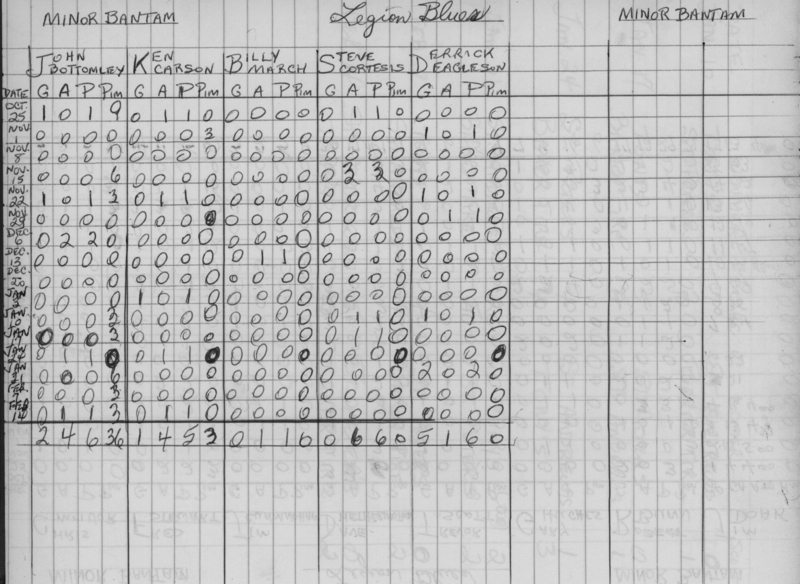 MINOR BANTAM Legion Blues MINOR BANTAM
JOHN BOTTOMLEY KEN CARSON BILLY MARCH STEVE CORTESIS DERRICK EAGLESON
DATE G A P Pim G A P Pim G A P Pim G A P Pim G A P Pim
OCT. 25 1 0 1 9 0 1 1 0 0 0 0 0 0 1 1 0 0 0 0 0
NOV 1 0 0 0 0 0 0 0 3 0 0 0 0 0 0 0 0 1 0 1 0
NOV. 8 0 0 0 0 0 0 0 0 0 0 0 0 0 0 0 0 0 0 0 0
NOV. 15 0 0 0 6 0 0 0 0 0 0 0 0 0 3 3 0 0 0 0 0
NOV. 22 1 0 1 3 0 1 1 0 0 0 0 0 0 0 0 0 1 0 1 0
NOV 29 0 0 0 0 0 0 0 0 0 0 0 0 0 0 0 0 0 1 1 0
DEC 6 0 2 2 0 0 0 0 0 0 0 0 0 0 0 0 0 0 0 0 0
DEC. 13 0 0 0 0 0 0 0 0 0 1 1 0 0 0 0 0 0 0 0 0
DEC. 20 0 0 0 0 0 0 0 0 0 0 0 0 0 0 0 0 0 0 0 0
JAN 0 0 0 0 1 0 1 0 0 0 0 0 0 0 0 0 0 0 0 0
JAN 0 0 0 3 0 0 0 0 0 0 0 0 0 1 1 0 1 0 1 0
JAN 0 0 0 3 0 0 0 0 0 0 0 0 0 1 1 0 0 0 0 0
JAN 0 1 1 0 0 1 1 0 0 0 0 0 0 0 0 0 0 0 0 0
JAN 0 0 0 6 0 0 0 0 0 0 0 0 0 0 0 0 2 0 2 0
FEB. 0 0 0 3 0 0 0 0 0 0 0 0 0 0 0 0 0 0 0 0
FEB 14 0 1 1 3 0 1 1 0 0 0 0 0 0 0 0 0 0 0 0 0
2 4 6 36 1 4 5 3 0 1 1 0 0 6 6 0 5 1 6 0